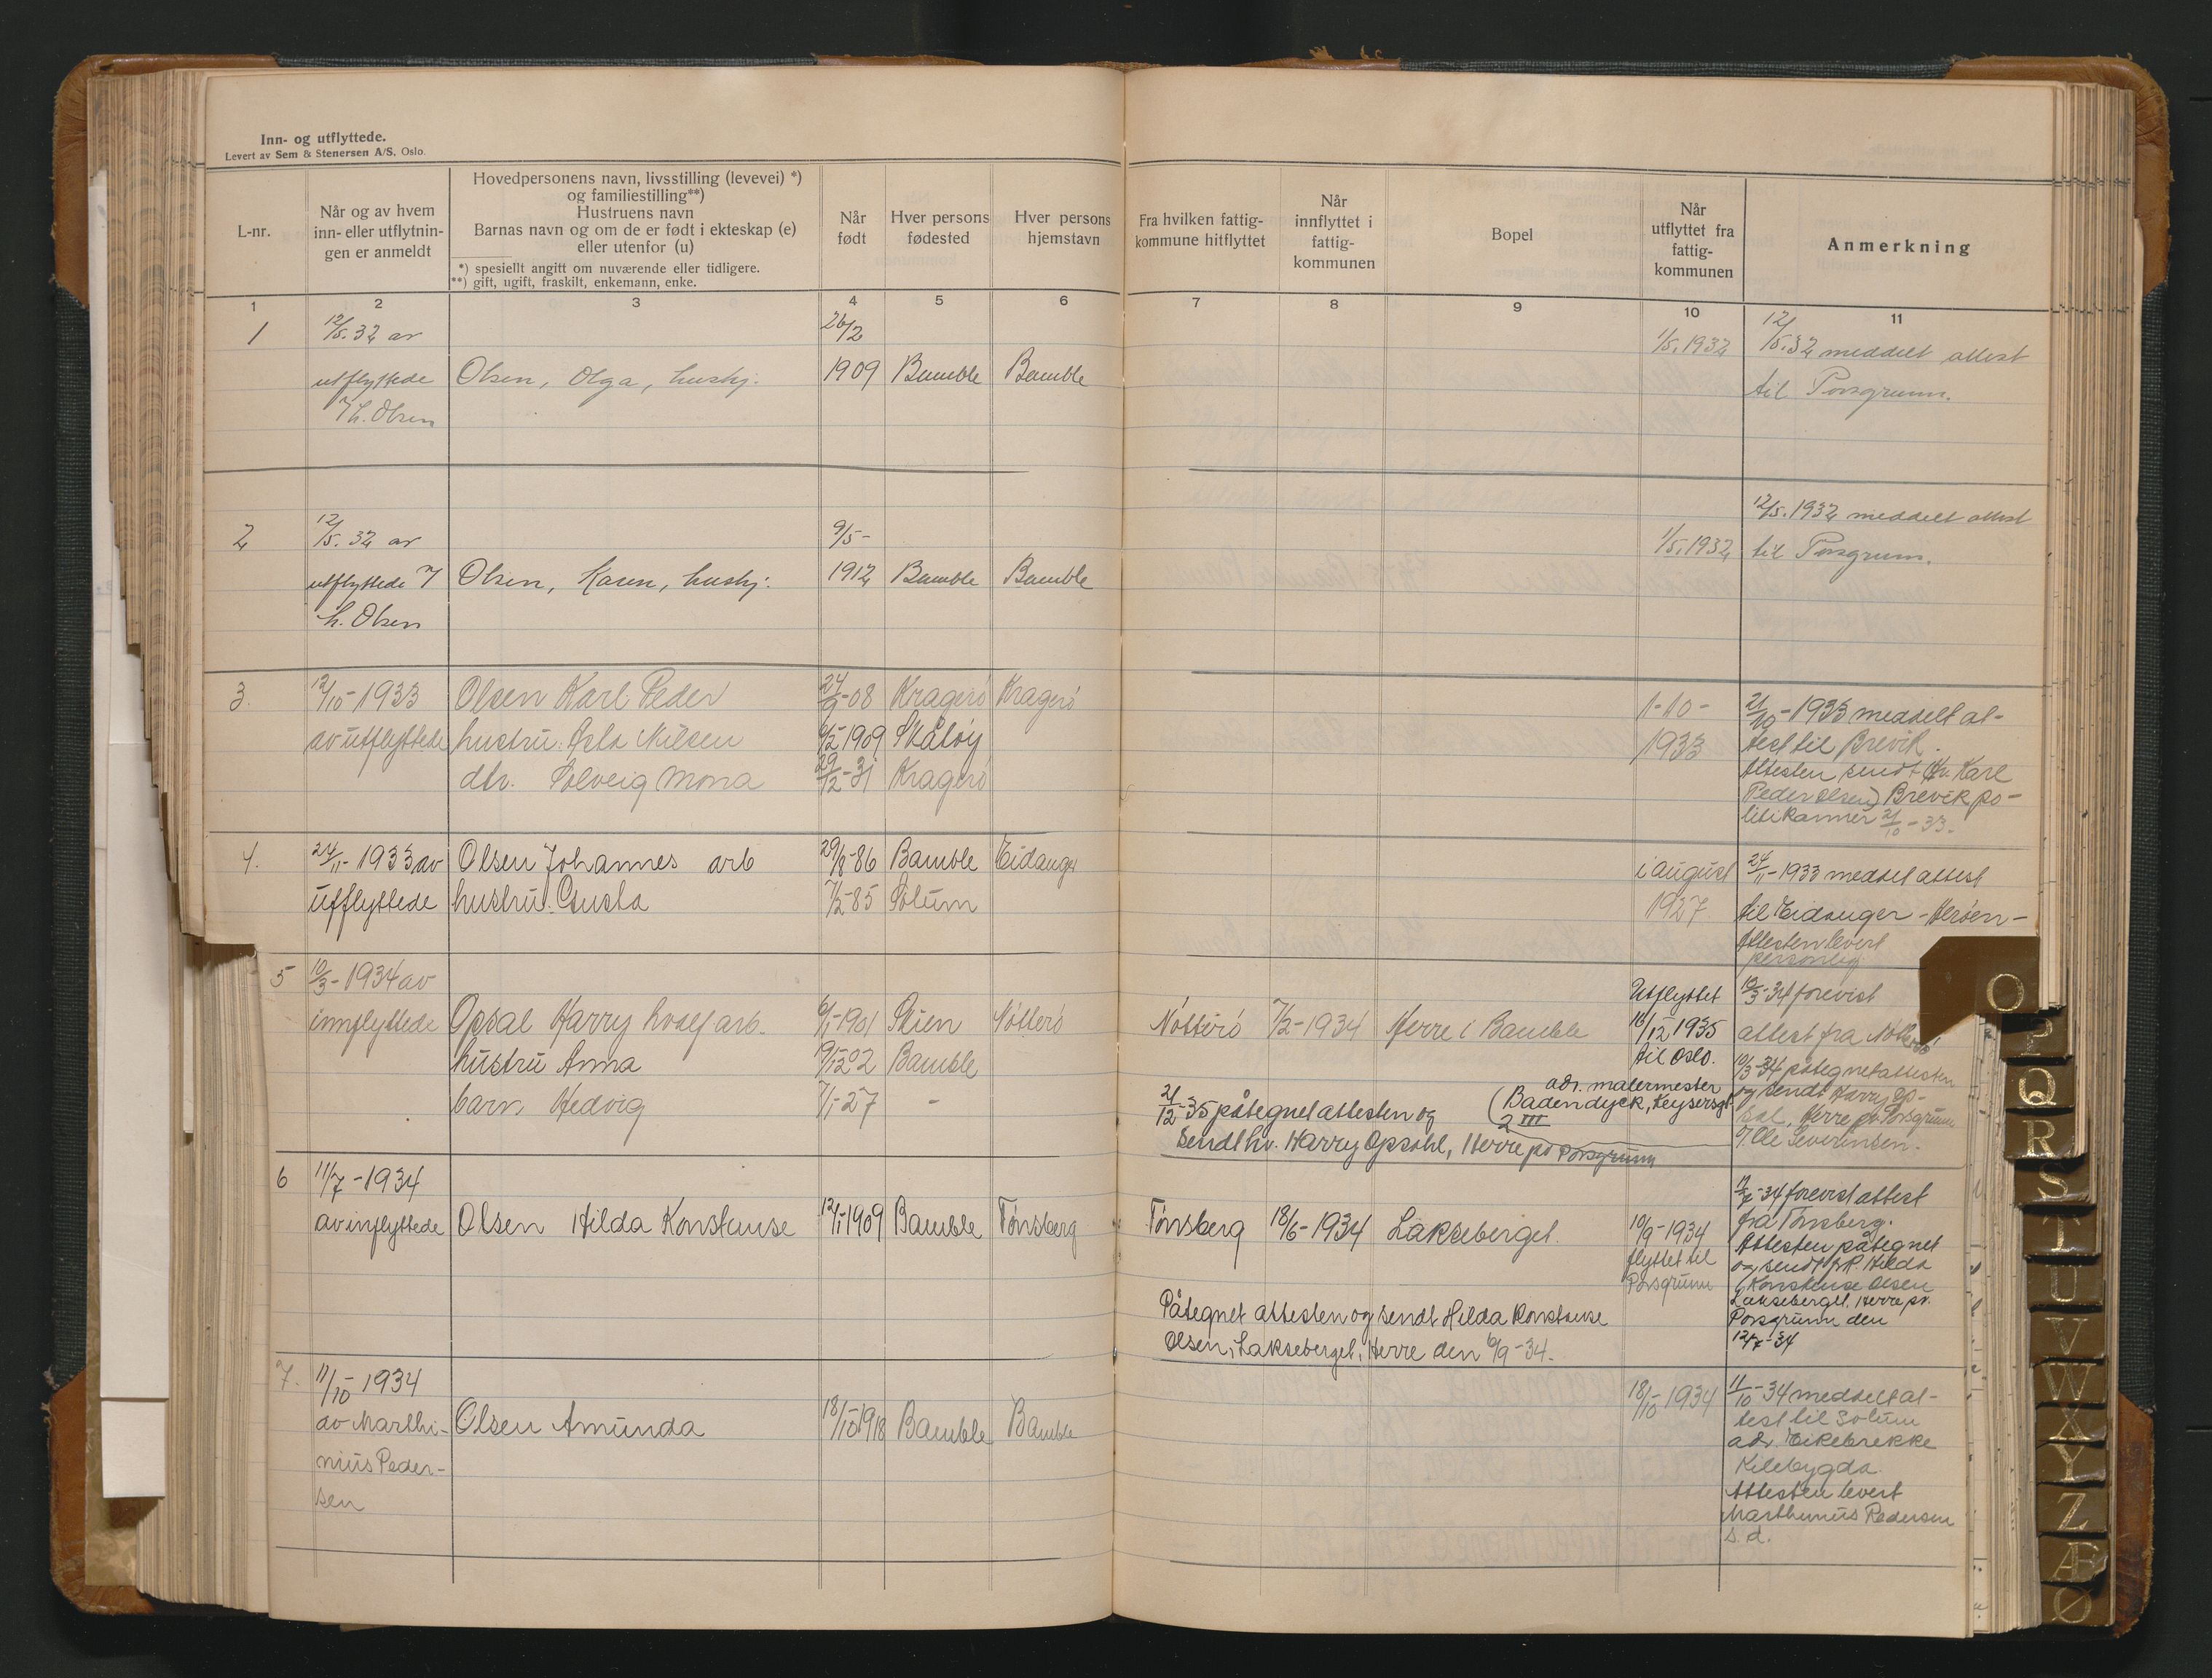 Inn- og utflyttede.
Levert av Sem & Stenersen A/S. Oslo.
L-nr.
Når og av hvem
inn- eller utflytnin-
gen er anmeldt
Hovedpersonens navn, livsstilling (levevei) *)
og familiestilling**)
Hustruens navn
Barnas navn og om de er født i ekteskap (e)
eller utenfor (u)
*) spesiellt angitt om nuværende eller tidligere.
**) gift, ugift, fraskilt, enkemann, enke.
Når
født
Hver persons
fødested
Hver persons
hjemstavn
Fra hvilken fattig-
kommune hitflyttet
Når
innflyttet i
fattig-
kommunen
Bopel
Når
utflyttet fra
fattig-
kommunen
Anmerkning
1 2 3 4 5 6 7 8 9 10 11
1 12/5.32 av 26/2 1/5.1932 12/5.32 meddelt attest
utflyttede Olsen, Olga, hushj. 1909 Bamble Bamble til Porsgrunn.
h. Olsen
12/5.1932 meddelt attest
2 12/5.32 av 9/5- 1/5.1932 til Porsgrunn.
utflyttede Olsen, Karen, hushj. 1912 Bamble Bamble
h. Olsen
3. 12/10-1933 Olsen Karl Peder 24/9-08 Kragerö Kragerö 1-10- 21/10-1933 meddelt at-
av utflyttede hustru: Nilsen 1909 Skåtöy 1933 test til Brevik.
dtr. Solveig Mona 29/12-31 Kragerö Attesten sendt hr. Karl
Peder Olsen) Brevik po-
litikammer 21/10-33.
4. 24/11-1933 av Olsen Johannes arb 29/8-86 Bamble Eidanger i august 24/11-1933 meddelt attest
utflyttede hustru: Gusta 7/2-85 Solum 1927 til Eidanger -Heröen-
Attesten levert
personlig
5 10/3-1934 av Utflyttet 10/3-34 forevist
innflyttede Opsal Harry arb. 6/1-1901 Skien Nötterö Nötterö 7/2-1934 Herre i Bamble 16/12 1935 attest fra Nötterö
hustru Anna Bamble til Oslo. 10/3-34 påtegnet attesten
barn Hedvig 7/1-27 - adr. malermester og sendt Harry Op-
21/12-35 påtegnet attesten og (Badendyck, Keysersgt. sal, Herre pr Porsgrunn
2 III Ole Severinsen.
sendt hr. Harry Opsahl, Herre pr Porsgrunn
6 11/7-1934 34 forevist attest
av inflyttede Olsen Hilda Konstanse 12/1-1909 Bamble Tönsberg Tönsberg 18/6-1934 Lakseberget. 10/9-1934 fra Tönsberg.
flyttet til Attesten påtegnet
Porsgrunn og sendt frk Hilda
Konstanse Olsen
Lakseberget, Herre pr.
Påtegnet attesten og sendt Hilda Konstanse Porsgrunn den
Olsen, Lakseberget, Herre den 6/9-34. 12/7-34
7. 11/10-1934 18/10-1934 11/10-34 meddelt at-
av Marthi- Olsen Amunda 18/10 1918 Bamble Bamble test til Solum
nius Peder- adr. Eikebrekke
sen Kilebygda
Attesten levert
Marthinius Pedersen
s. d.
O
P
Q
R
S
T
U
V
W
X
Y
Z
Æ
Ø